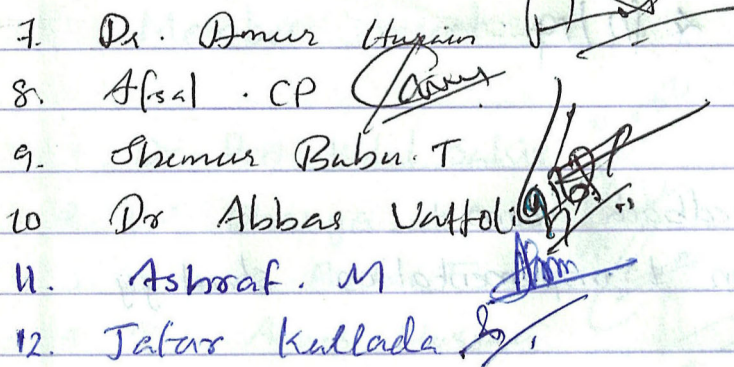 7. Dr. Amur Husain
8. Afsal . CP
9. Shemur Babu. T
10 Dr Abbas Vattoli
11. Ashraf. M
12. Jafar Kallada